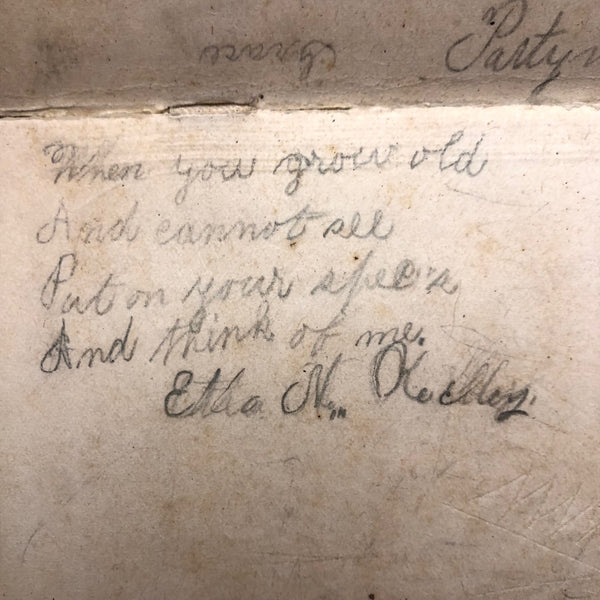 Party
When you grow old
And cannot see
Put on your spec's
And think of me.
Etha N.